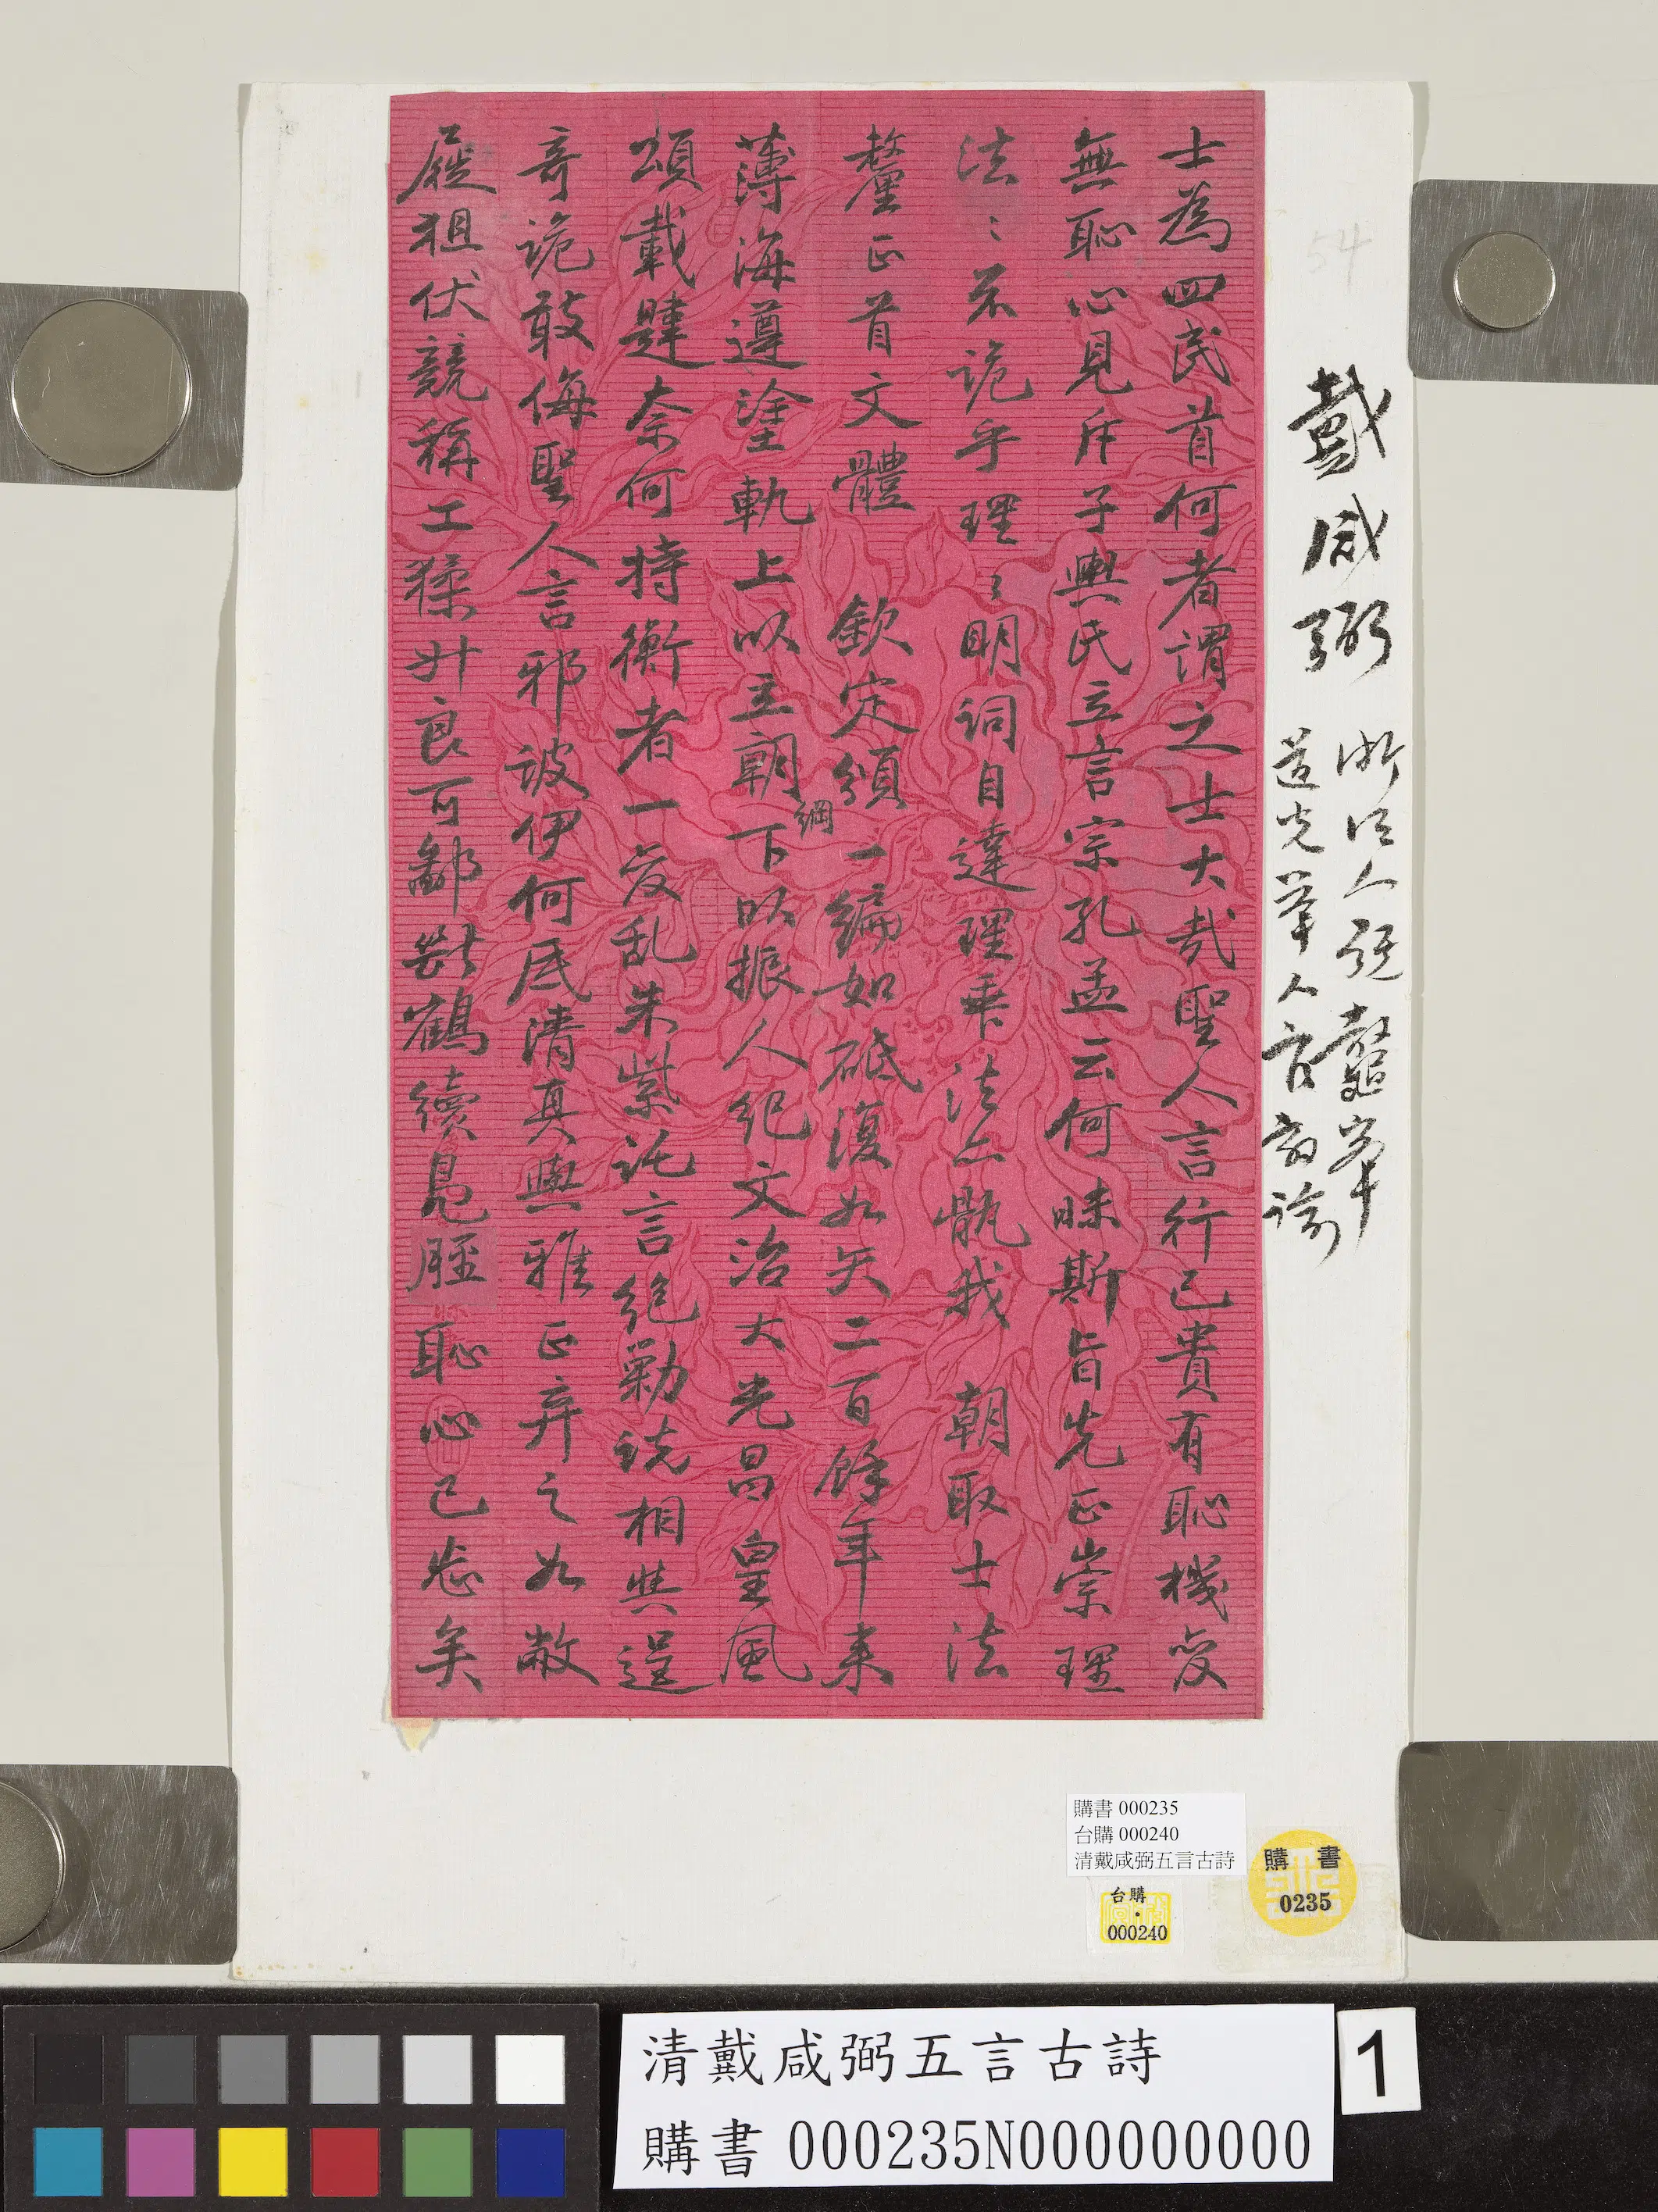 士為四民首何者謂之士大哉聖人言行己貴有恥機變
無恥心見斥子輿氏立言宗孔孟云何昧斯旨先正崇理
法法不詭乎理理明詞自達理乖法亦骫我 朝取士法
釐正首文體 欽定頒一編如砥復如矢二百餘年來
薄海遵塗軌上以立朝綱下以振人紀文治大光昌皇風
頌載肆奈何持衡者一變乱朱紫託言絕勦說相與逞
奇詭敢侮聖人言邪詖伊何底清真與雅正弃之如敝
屣狙伏競稱工猱升良可鄙斷鶴續鳧脛恥心已忘矣
戴咸弼
浙江人號鼇峯
道光舉人官教諭
54
購書 000235
台購 000240
清戴咸弼五言古詩
購 書
0235
台購
000240
清戴咸弼五言古詩
購書 000235N000000000
1